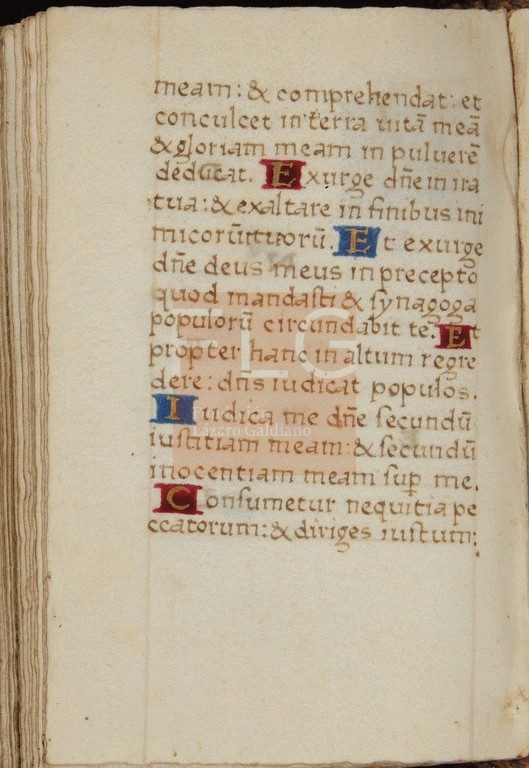 meam: & comprehendat: et
conculcet in terra uitā meā
& gloriam meam in puluerē
deducat. Exurge dn̄e in ira
tua: & exaltare in finibus ini
micorū tuorū. Et exurge
dn̄e deus meus in precepto
quod mandasti & synagoga
populorū circundabit te. Et
propter hanc in altum regre
dere: dn̄s iudicat populos.
Iudica me dn̄e secundū
iustitiam meam: & secundū
inocentiam meam sup̄ me.
Consumetur nequitia pe
ccatorum: & diriges iustum:
FLG
Lázaro Galdiano